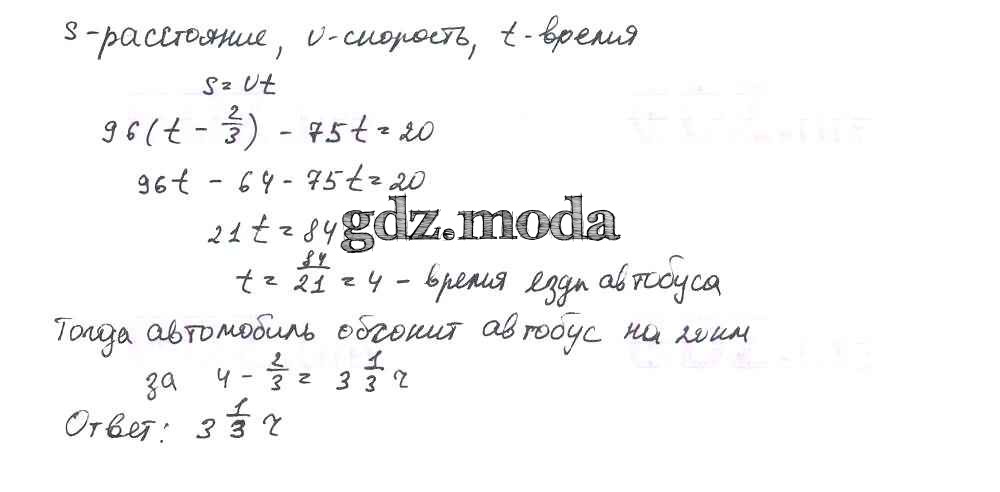 S-расстояние, v-скорость, t-время
S = vt
96(t - 2/3) - 75t = 20
96t - 64 - 75t = 20
21t = 84
gdz.moda
t = 84/21 = 4 - время езды автобуса
Тогда автомобиль обгонит автобус на 20км
за 4 - 2/3 = 3 1/3 ч
Ответ: 3 1/3 ч